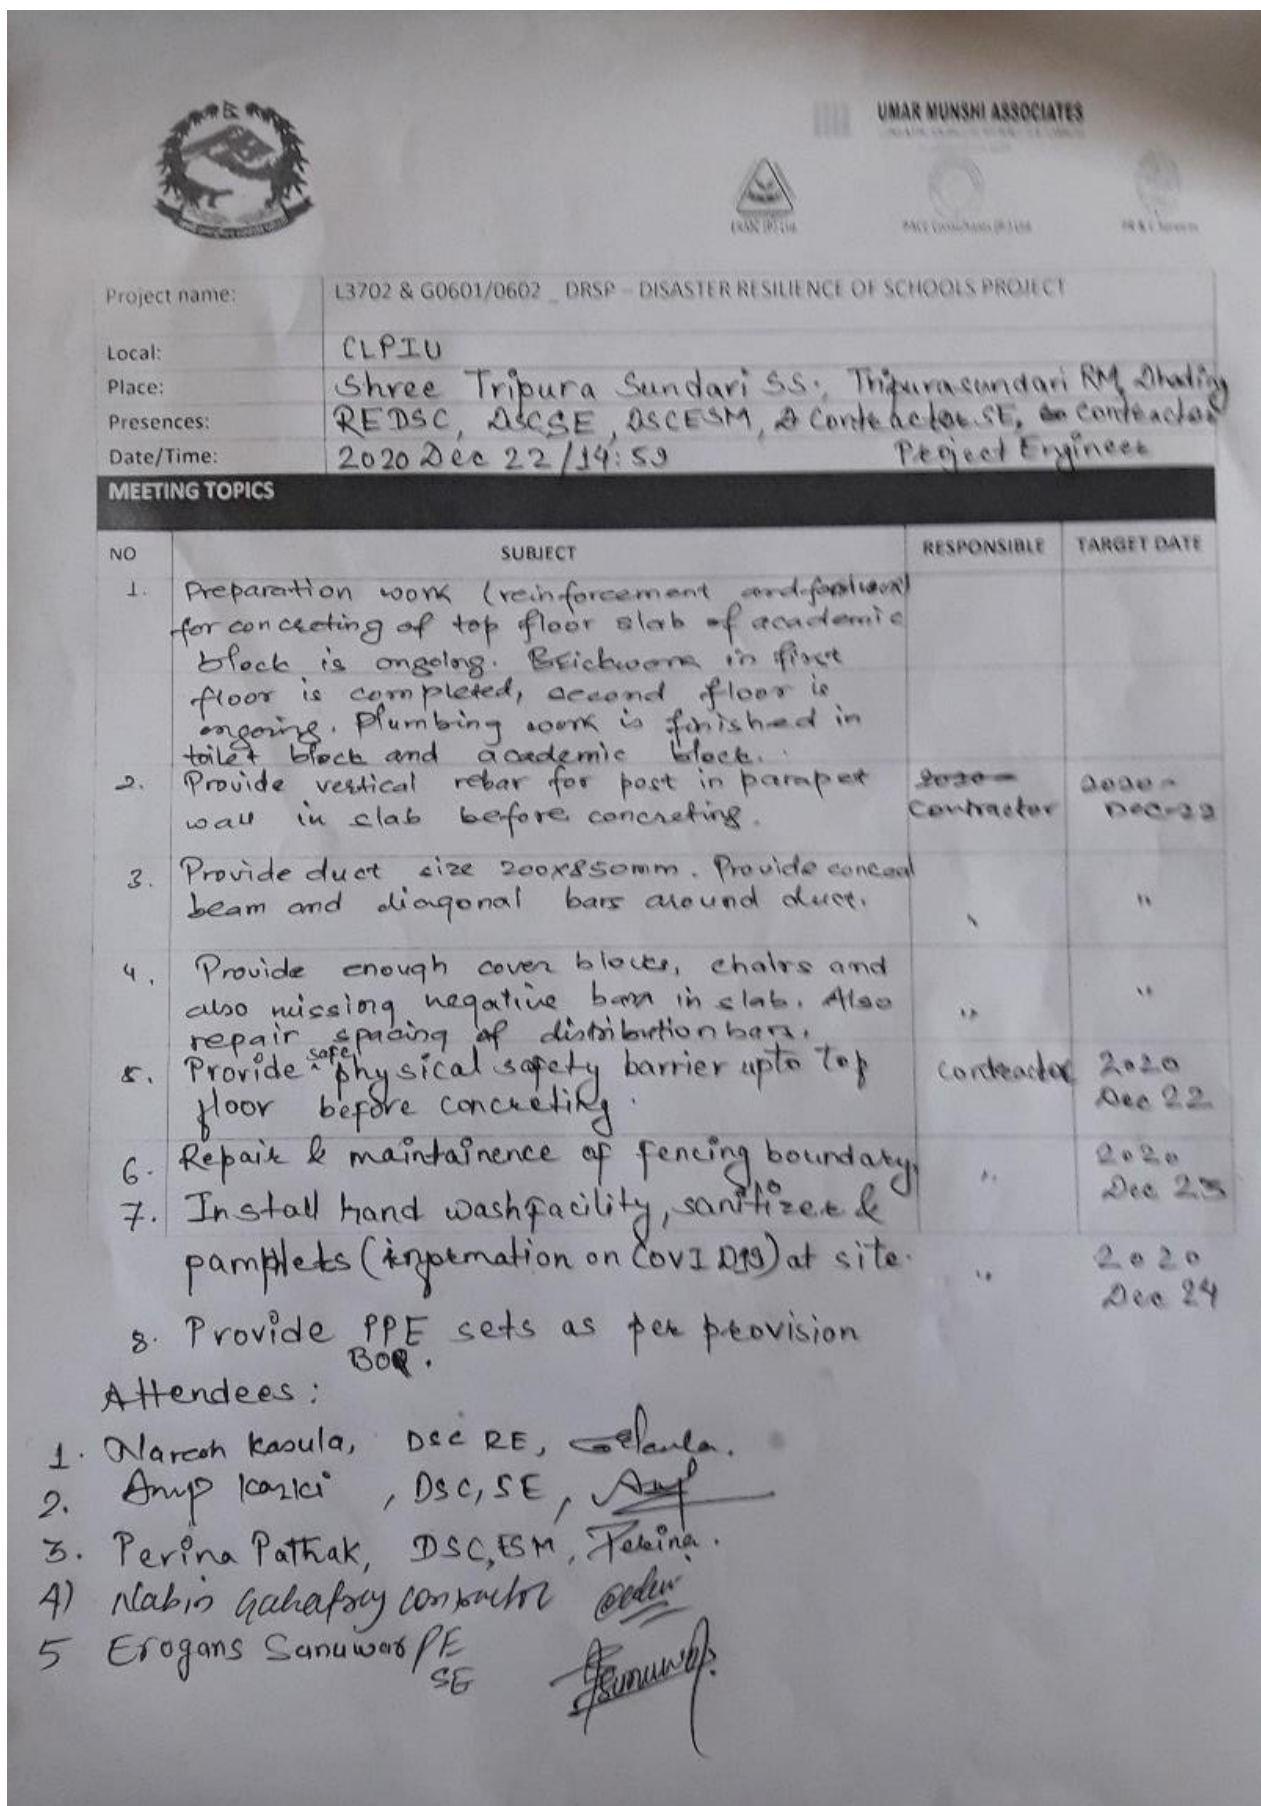 UMAR MUNSHI ASSOCIATES
Project name: L3702 & G0601/0602 _ DRSP – DISASTER RESILIENCE OF SCHOOLS PROJECT
Local: CLPIU
Place: Shree Tripura Sundari SS., Tripurasundari RM, Dhading
Presences: REDSC, DSCSE, DSCESM, Contractor SE, Contractor
Project Engineer
Date/Time: 2020 Dec 22/14:59
MEETING TOPICS
NO SUBJECT RESPONSIBLE TARGET DATE
1. Preparation work (reinforcement and
for concreting of top floor slab of academic
block is ongoing. Brickwork in first
floor is completed, second floor is
ongoing. Plumbing work is finished in
toilet block and academic block.
2. Provide vertical rebar for post in parapet 2020- 2020-
wall in slab before concreting. Contractor Dec-22
3. Provide duct size 200x850mm. Provide conceal
beam and diagonal bars around duct. "
4. Provide enough cover blocks, chairs and
also missing negative bars in slab. Also " "
repair spacing of distribution bars.
5. Provide safe physical safety barrier upto top contractor 2020
floor before concreting. Dec 22
6. Repair & maintainence of fencing boundary, " 2020
Dec 23
7. Install hand wash facility, sanitizer &
pamplets (information on COVID19) at site. " 2020
Dec 24
8. Provide PPE sets as per provision
BOQ.
Attendees:
1. Naresh Kasula, DSC RE,
2. Anup Karki, DSC, SE, Anup
3. Perina Pathak, DSC, ESM, Perina.
4) Nabin contractor
5 Erogans Sanuwar PE
SE
Sunuwar